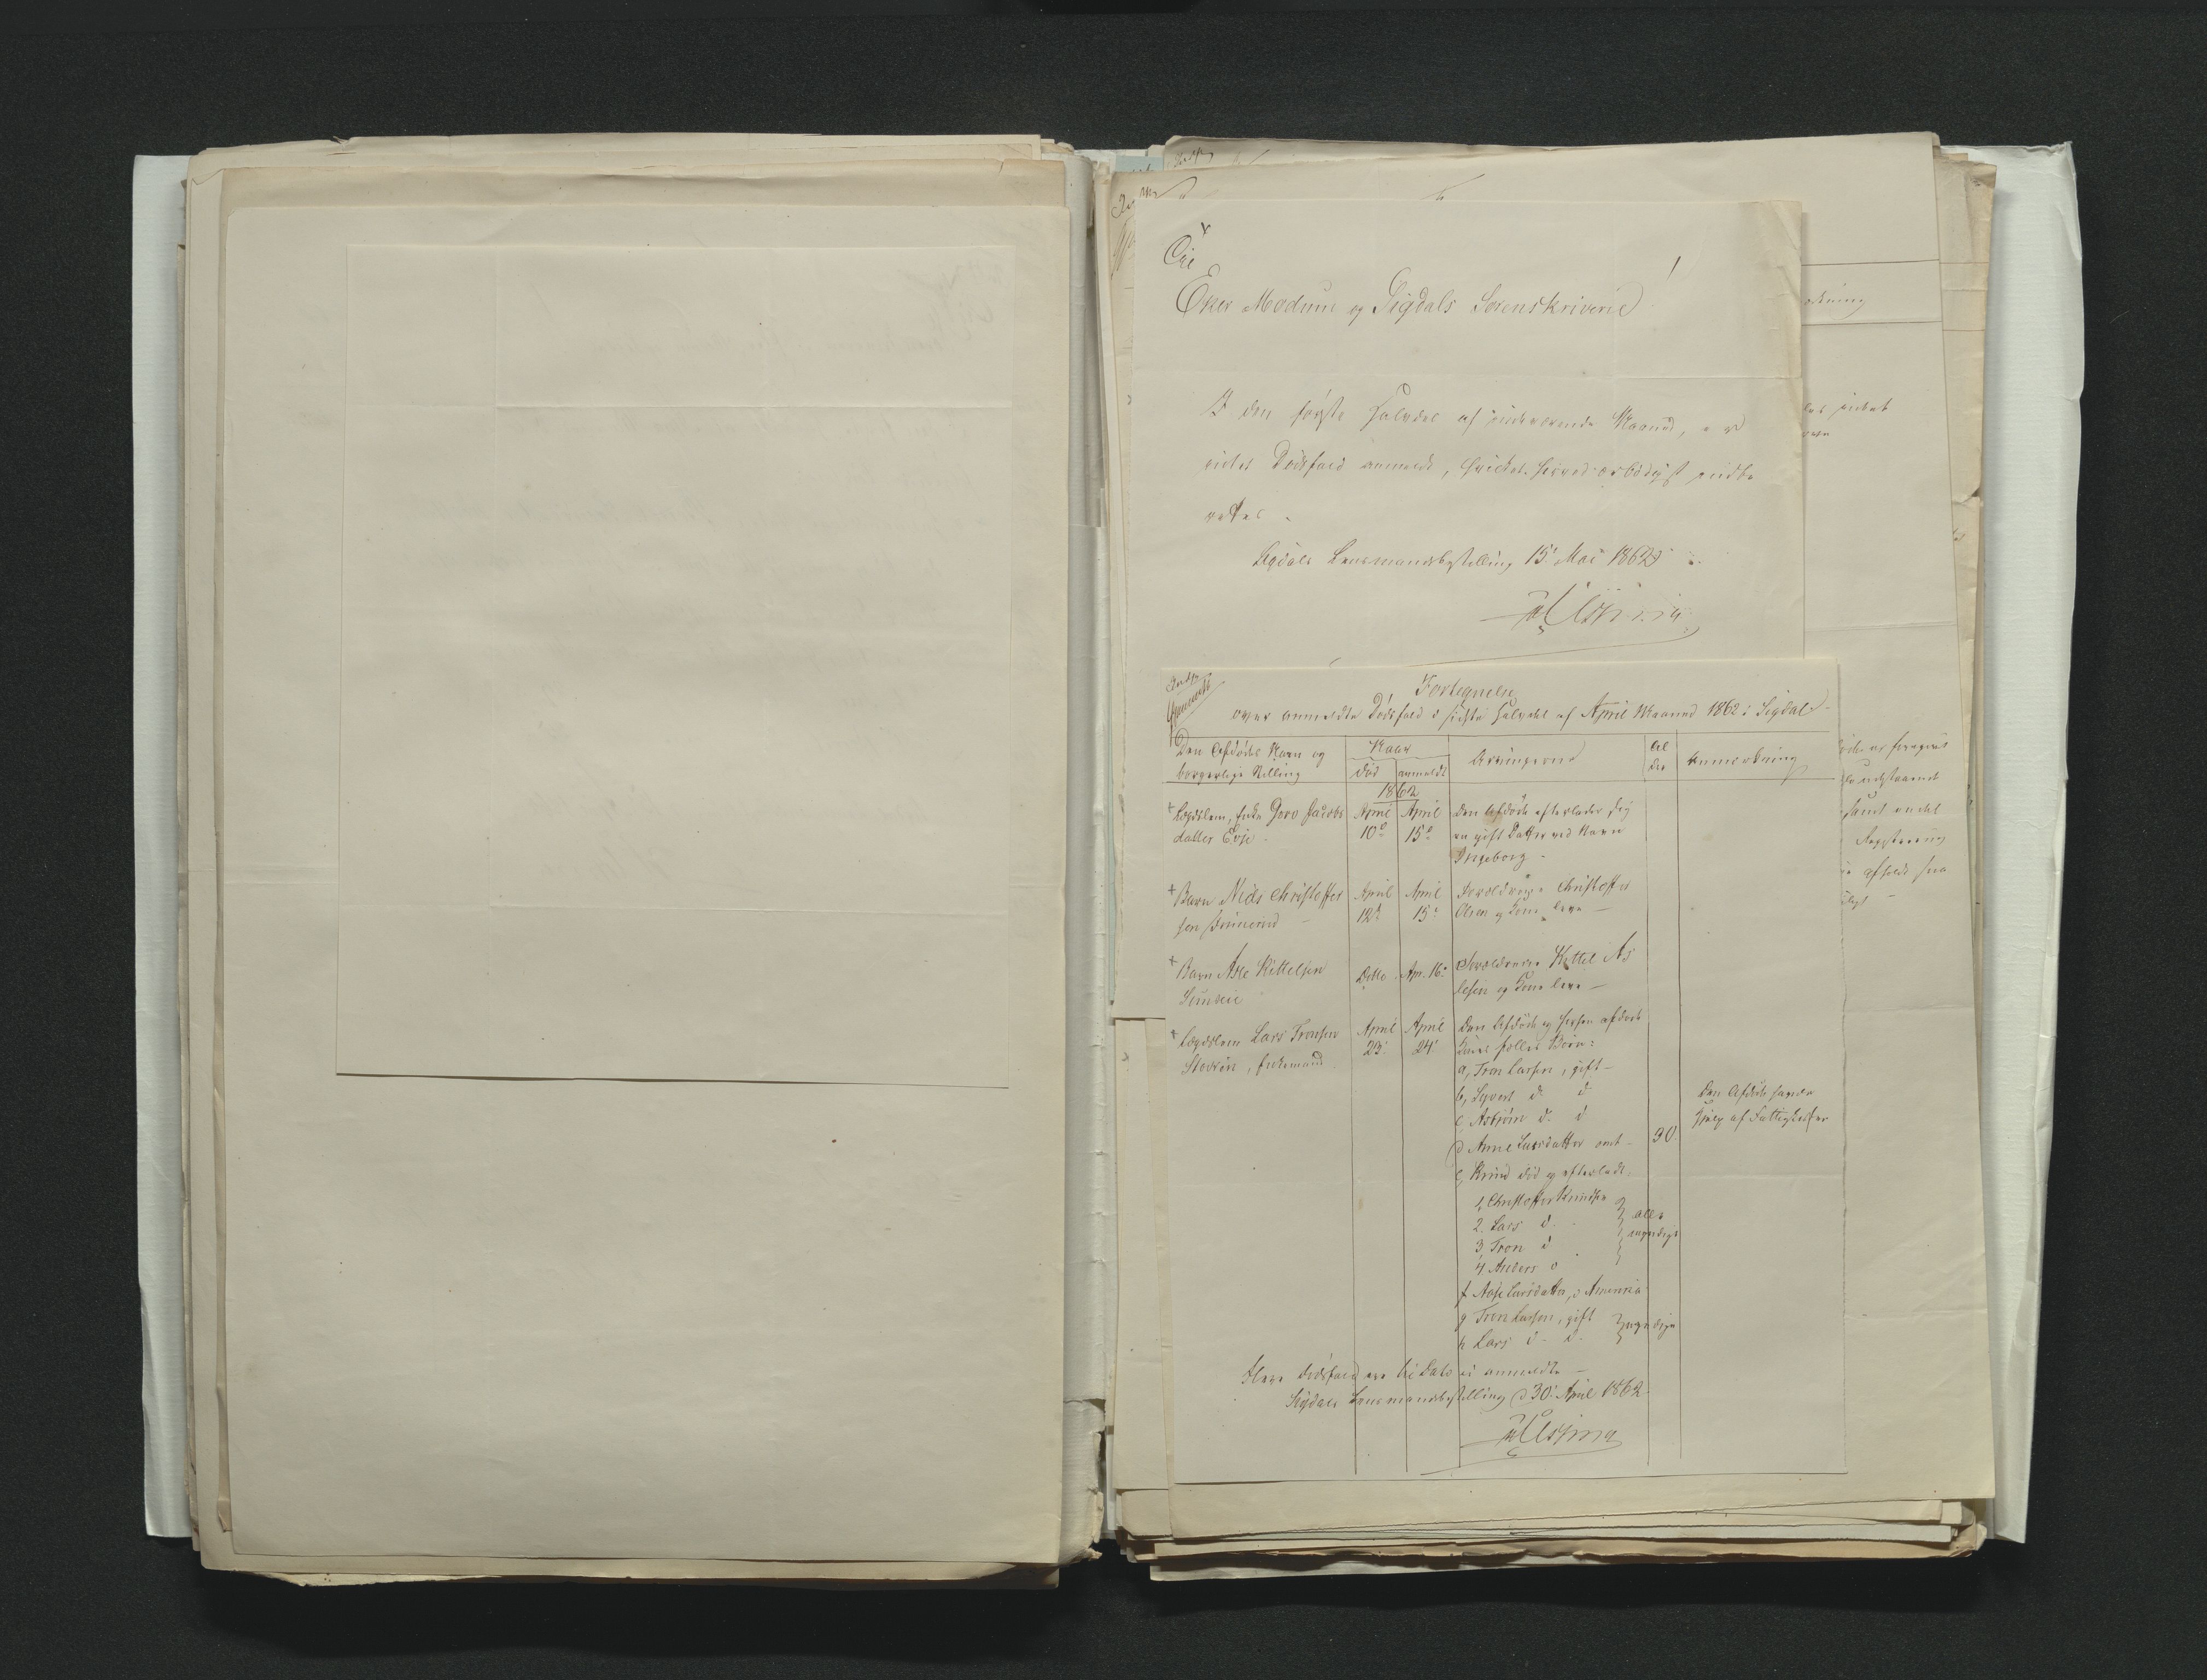 Til
Eker Modum og Sigdals Sorenskriverie!
I den første Halvdel af indeværende Maaned, er
intet Dødsfald anmeldt, hvilket herved ærbødigst indbe
rettes.
Sigdals Lensmandsbestilling 15. Mai 1862
Fortegnelse
over anmeldte Dødsfald i sidste Halvdel af April Maaned 1862 i Sigdal
Den Afdødes Navn og
borgerlige Stilling
Naar
død anmeldt
Arvingerne
Al
der
Anmerkning
1862
Lægdslem, Enke Goro Jacobs
datter Evje
April
10
April
15
Den Afdøde efterlader sig
en gift Datter ved Navn
Ingeborg
Barn Niels Christoffer
sen
April
12
April
15
Forældrene Christoffer
Olsen og Kone leve
Barn Asle Kittelsen
Ditto
Apr. 16
Forældrene Kittel As
lesen og Kone leve
Lægdslem Lars Tronsen
, Enkemand
April
23
April
24
Den Afdøde og hersen afdøde
Kones fælles Børn:
a, Tron Larsen, gift
b, Syvert d. d
c Asbjörn d. d
d Anne Larsdatter omt
30
e, Knud død og efterladt
1, Christoffer Knudsen
2. Lars d.
3, Tron d
4 Anders d
alle
myndige
f Aase Larsdatter, i Amerika
g Tron Larsen, gift
h Lars d. d.
myndige
Den Afdøde havde
Hjelp af Fattigkassen
Flere Dødsfald ere til Dato ei anmeldte
Sigdals Lensmandsbestilling d 30. April 1862